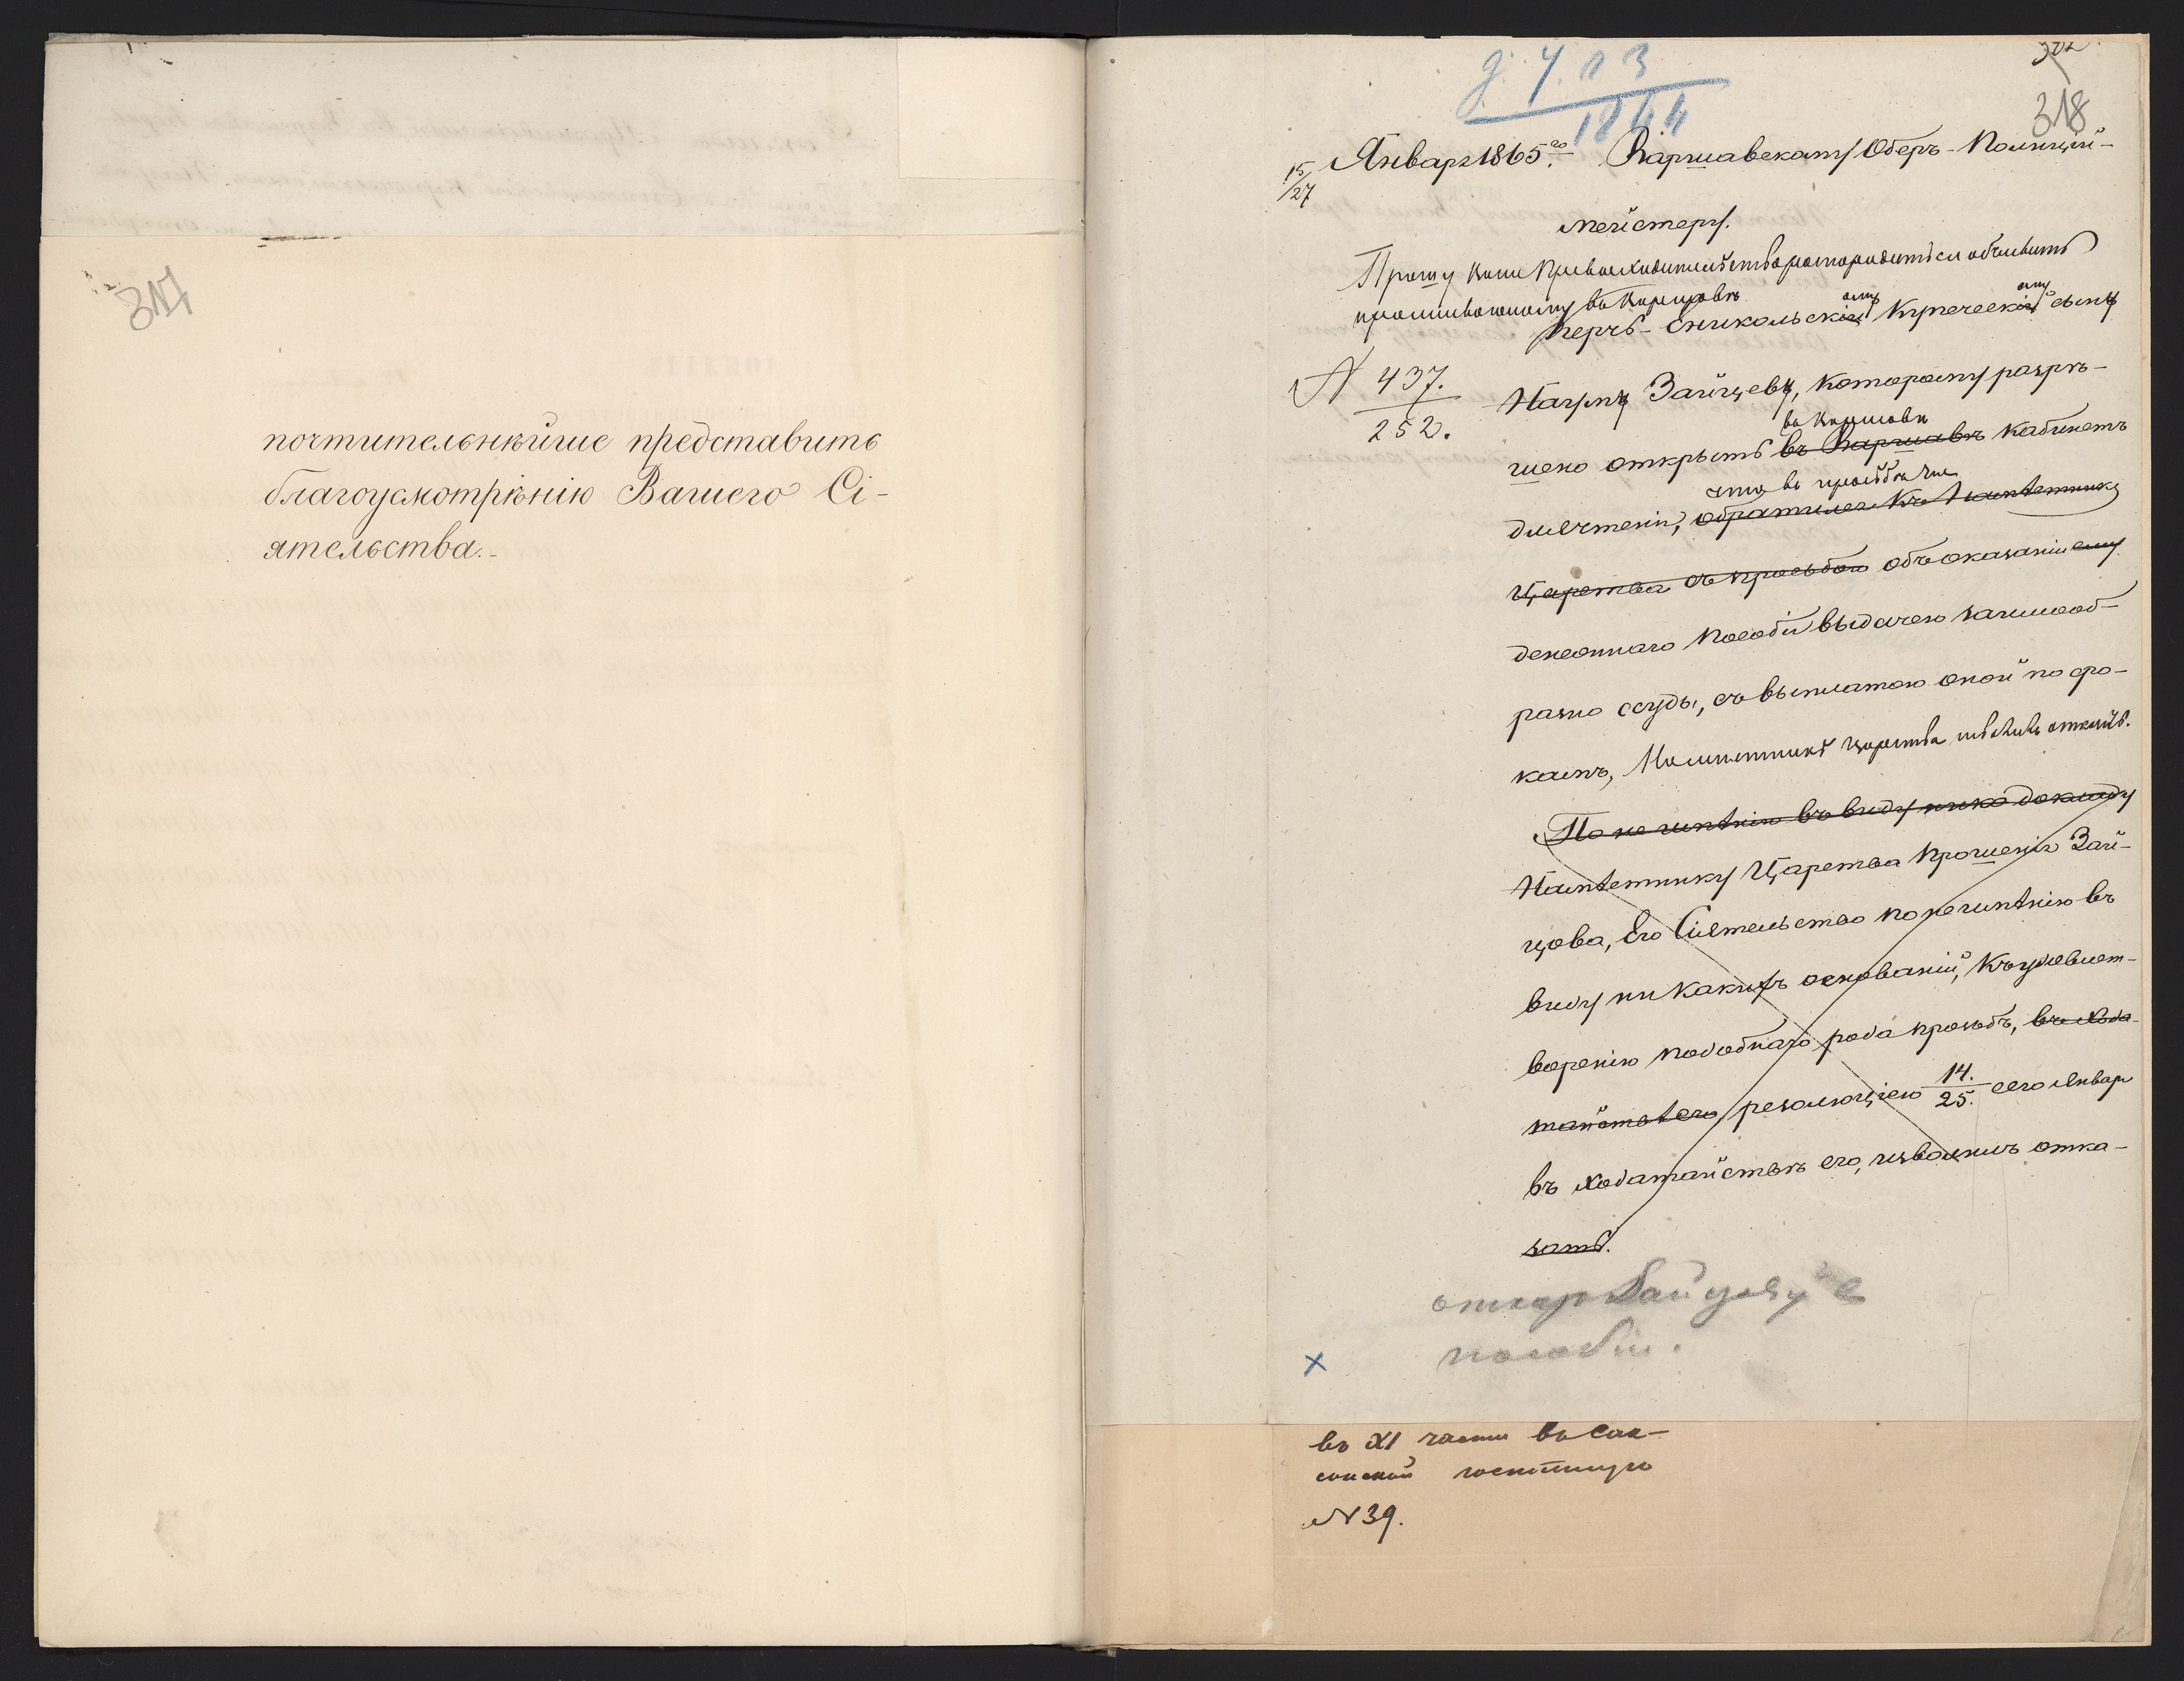 317
почтительнѣйше представить
благоусмотрѣнію Вашего Сі-
ятельства.-
1864
318
15/27 Января 1865го. Варшавскому Оберъ-Полицій-
мейстеру.
Прошу Ваше Превосходительство распорядиться объявить
проживающему въ Варшавѣ
Керчь-Еникольскому Купеческому сыну
N 437.
252.
Науму Зайцеву, которому разрѣ-
въ Варшавѣ
шено открыть въ Варшавѣ кабинетъ
что въ просьбѣ его
для чтенія, обратился къ Намѣстнику
Царства съ просьбою объ оказаніи ему
денежнаго пособія выдачею заимооб-
разно ссуды, съ выплатою оной по сро-
камъ, Намѣстникъ Царства отказать.
По не имѣнію въ виду доклада
Намѣстнику Царства прошенія Зай-
цова, Его Сіятельство по неимѣнію въ
виду никакихъ основаній, къ удовлет-
воренію подобнаго рода просьбъ, въ хода-
тайствѣ его, резолюціею 14./25. сего Января
въ ходатайствѣ его, изволилъ отка-
зать.
пособіи.
въ XI части въ Сак-
сонской гостинице
N 39.